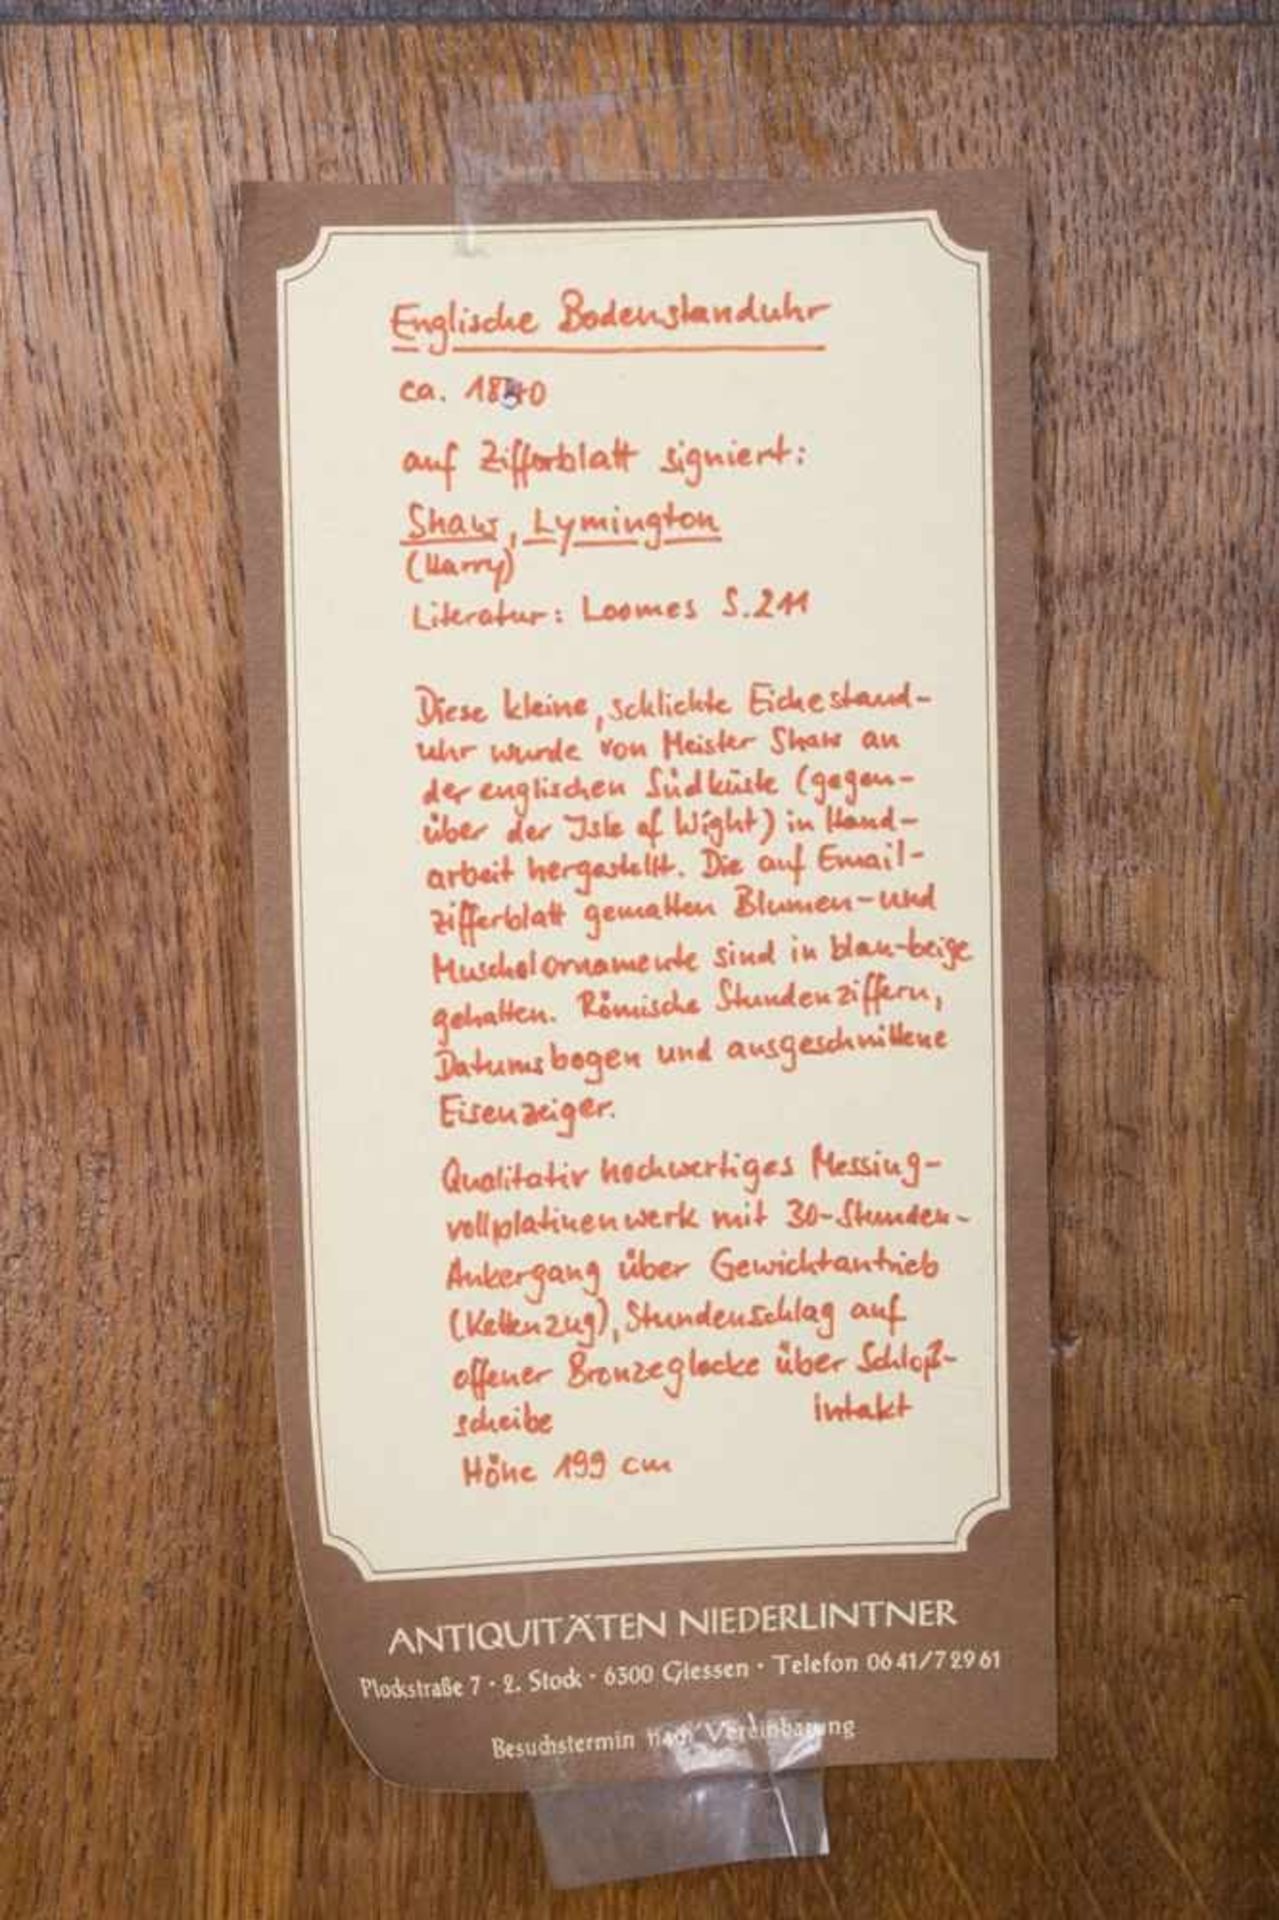 Englische Bodenstanduhr
ca.
auf Zifferblatt signiert:
Shaw, Lymington
(Harry)
Literatur: Loomes S. 211
Diese kleine, schlichte Eichestand-
uhr wurde von Meister Shaw an
der englischen Südküste (gegen-
über der Isle of Wight) in Hand-
arbeit hergestellt. Die auf Email-
zifferblatt gemalten Blumen- und
Muschelornamente sind in blau-beige
gehalten. Römische Stundenziffern,
Datumsbogen und ausgeschnittene
Eisenzeiger.
Qualitativ hochwertiges Messing-
vollplatinenwerk mit 30-Stunden-
Ankergang über Gewichtantrieb
(Kettenzug), Stundenschlag auf
offener Bronzeglocke über Schloß-
scheibe intakt
Höhe 199 cm
ANTIQUITÄTEN NIEDERLINTNER
Plockstraße 7 · 2. Stock · 6300 Giessen · Telefon 0641/72961
Besuchstermin nach Vereinbarung